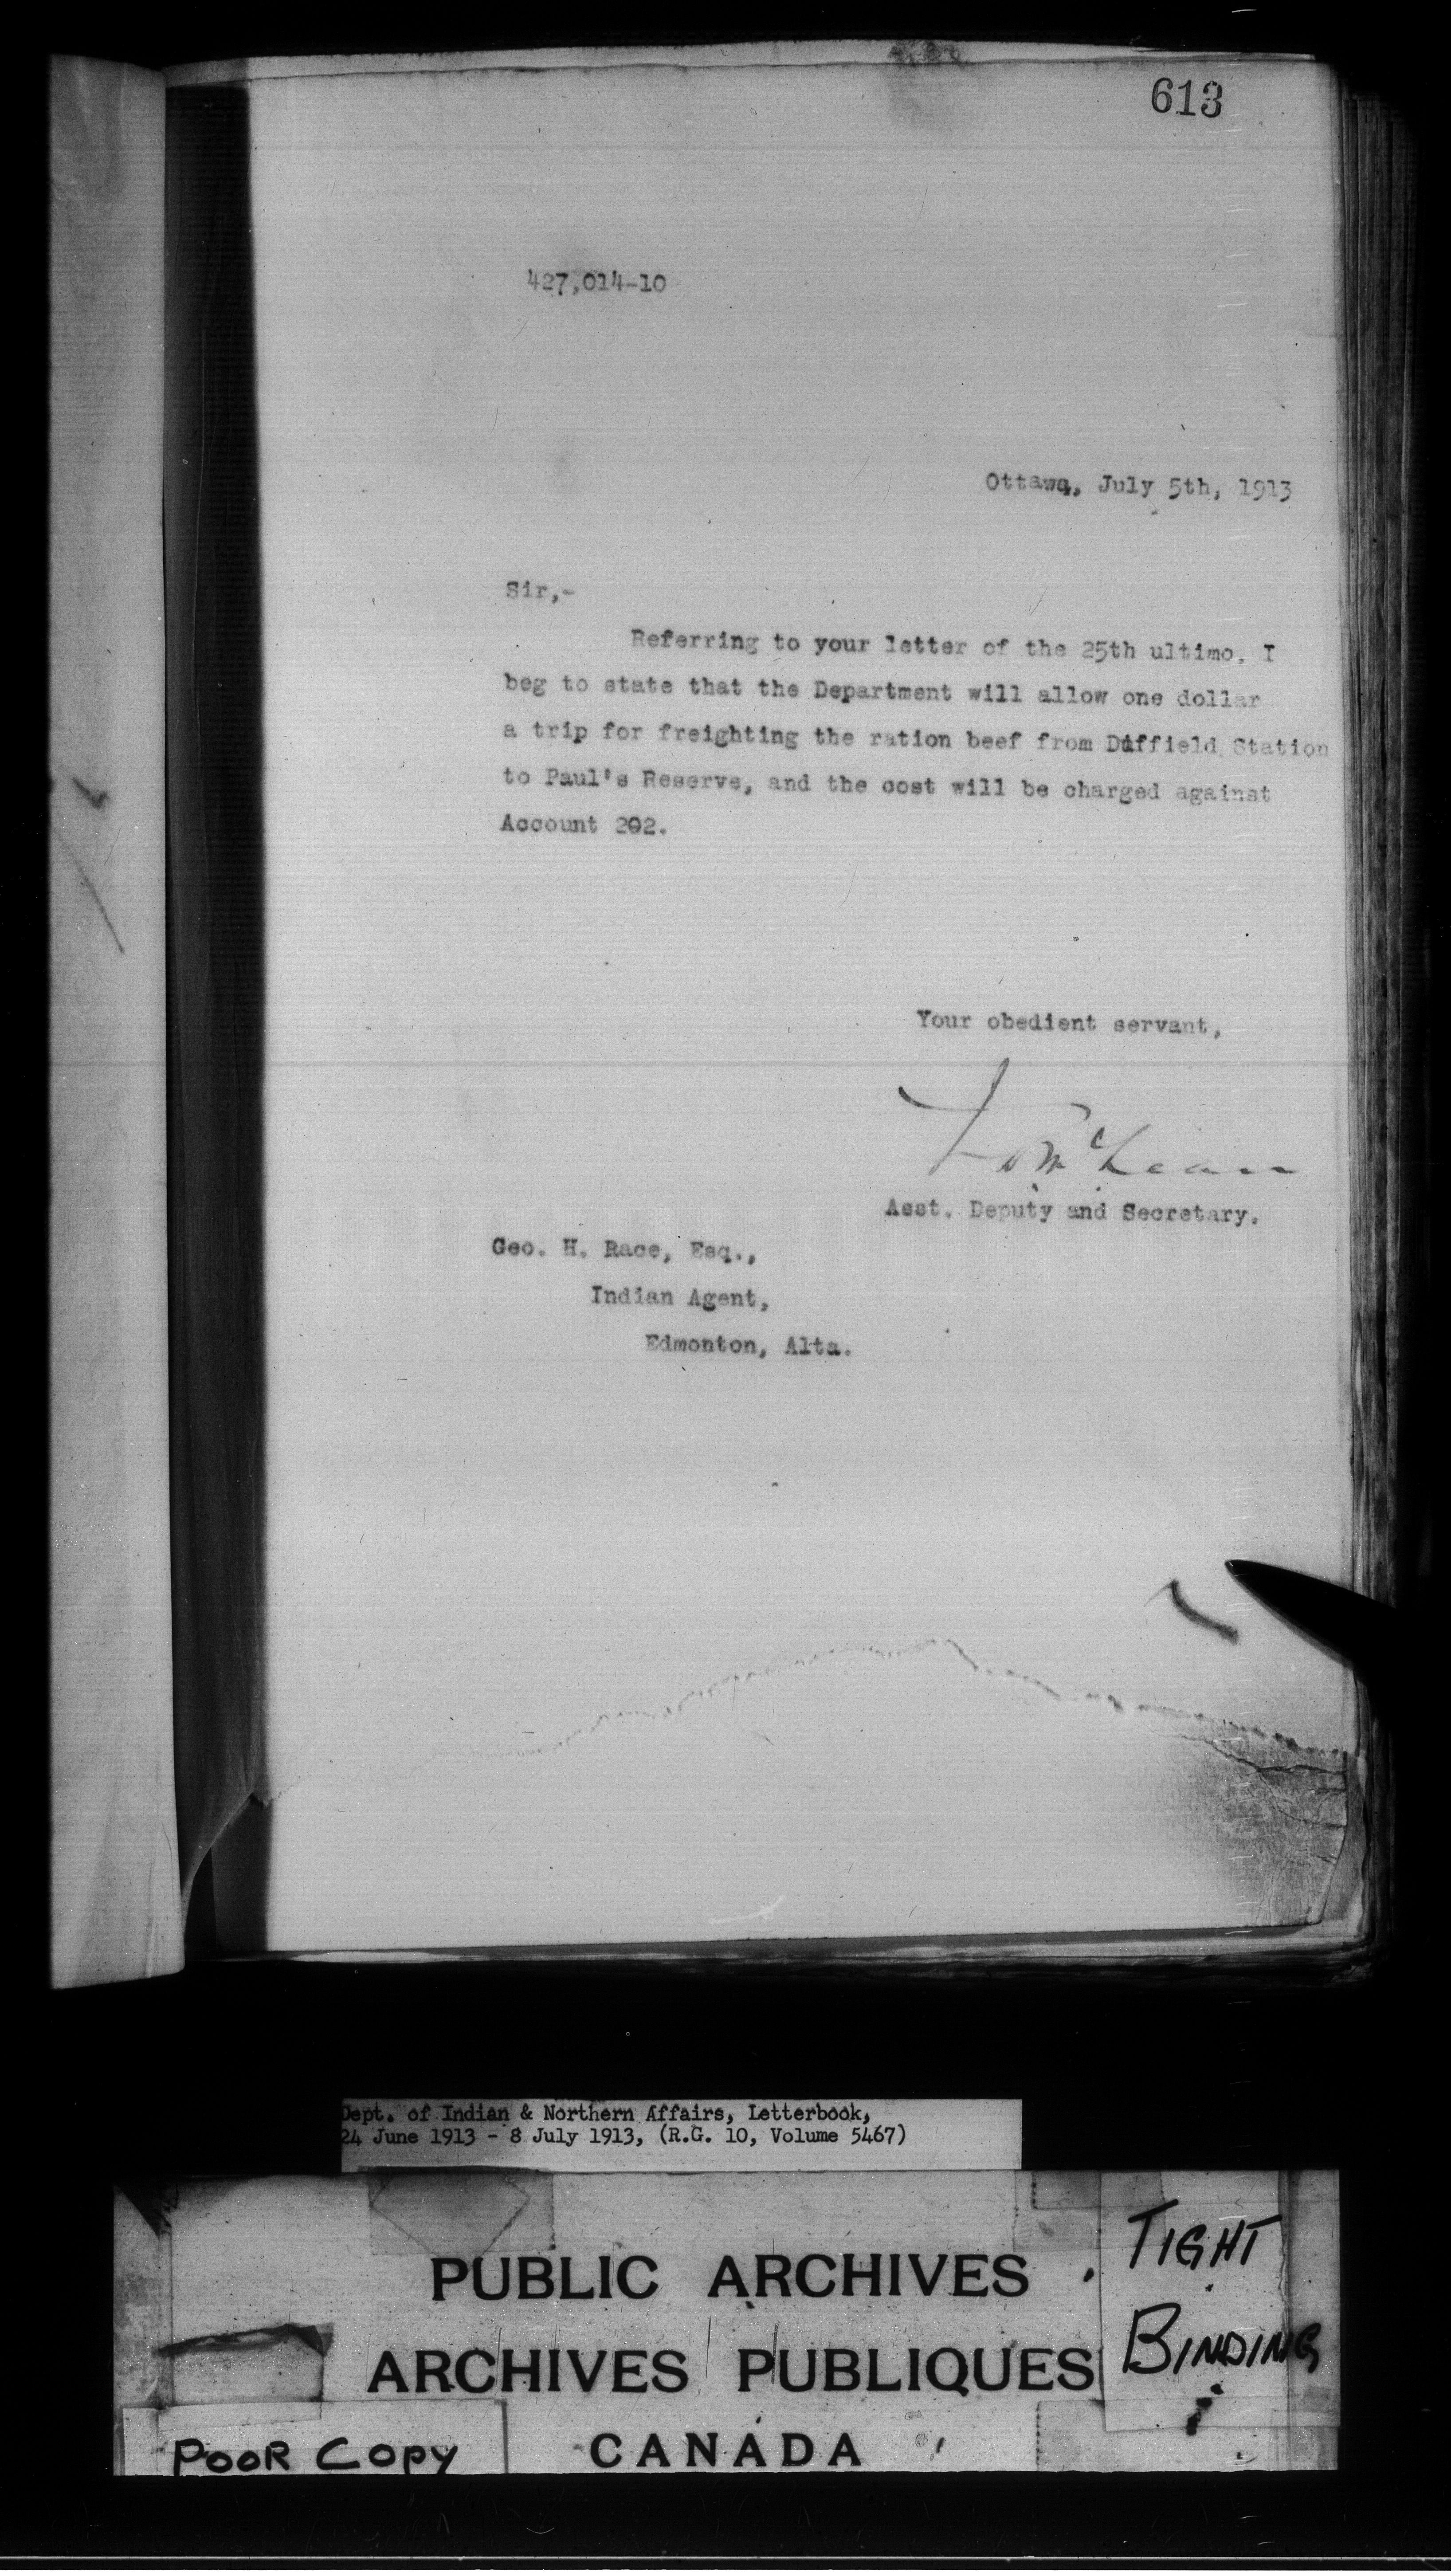 613
427,014-10
Ottawa, July 5th, 1913
Sir,-
Referring to your letter of the 25th ultimo, I
beg to state that the Department will allow one dollar
a trip for freighting the ration beef from Duffield Station
to Paul's Reserve, and the cost will be charged against
Account 202.
Your obedient servant,
McLean
Asst. Deputy and Secretary.
Geo. H. Race, Esq.,
Indian Agent,
Edmonton, Alta.
Dept. of Indian & Northern Affairs, Letterbook,
24 June 1913 - 8 July 1913, (R.G. 10, Volume 5467)
PUBLIC ARCHIVES
ARCHIVES PUBLIQUES
CANADA
TIGHT
BINDING
POOR COPY